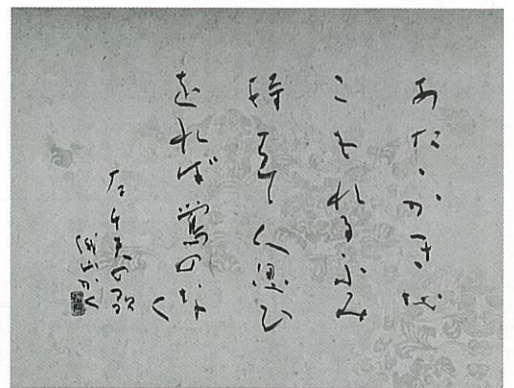 あたゝかき心
こもれるふみ
持ちて人思ひ
をれば鶯のな
く
左千夫の歌